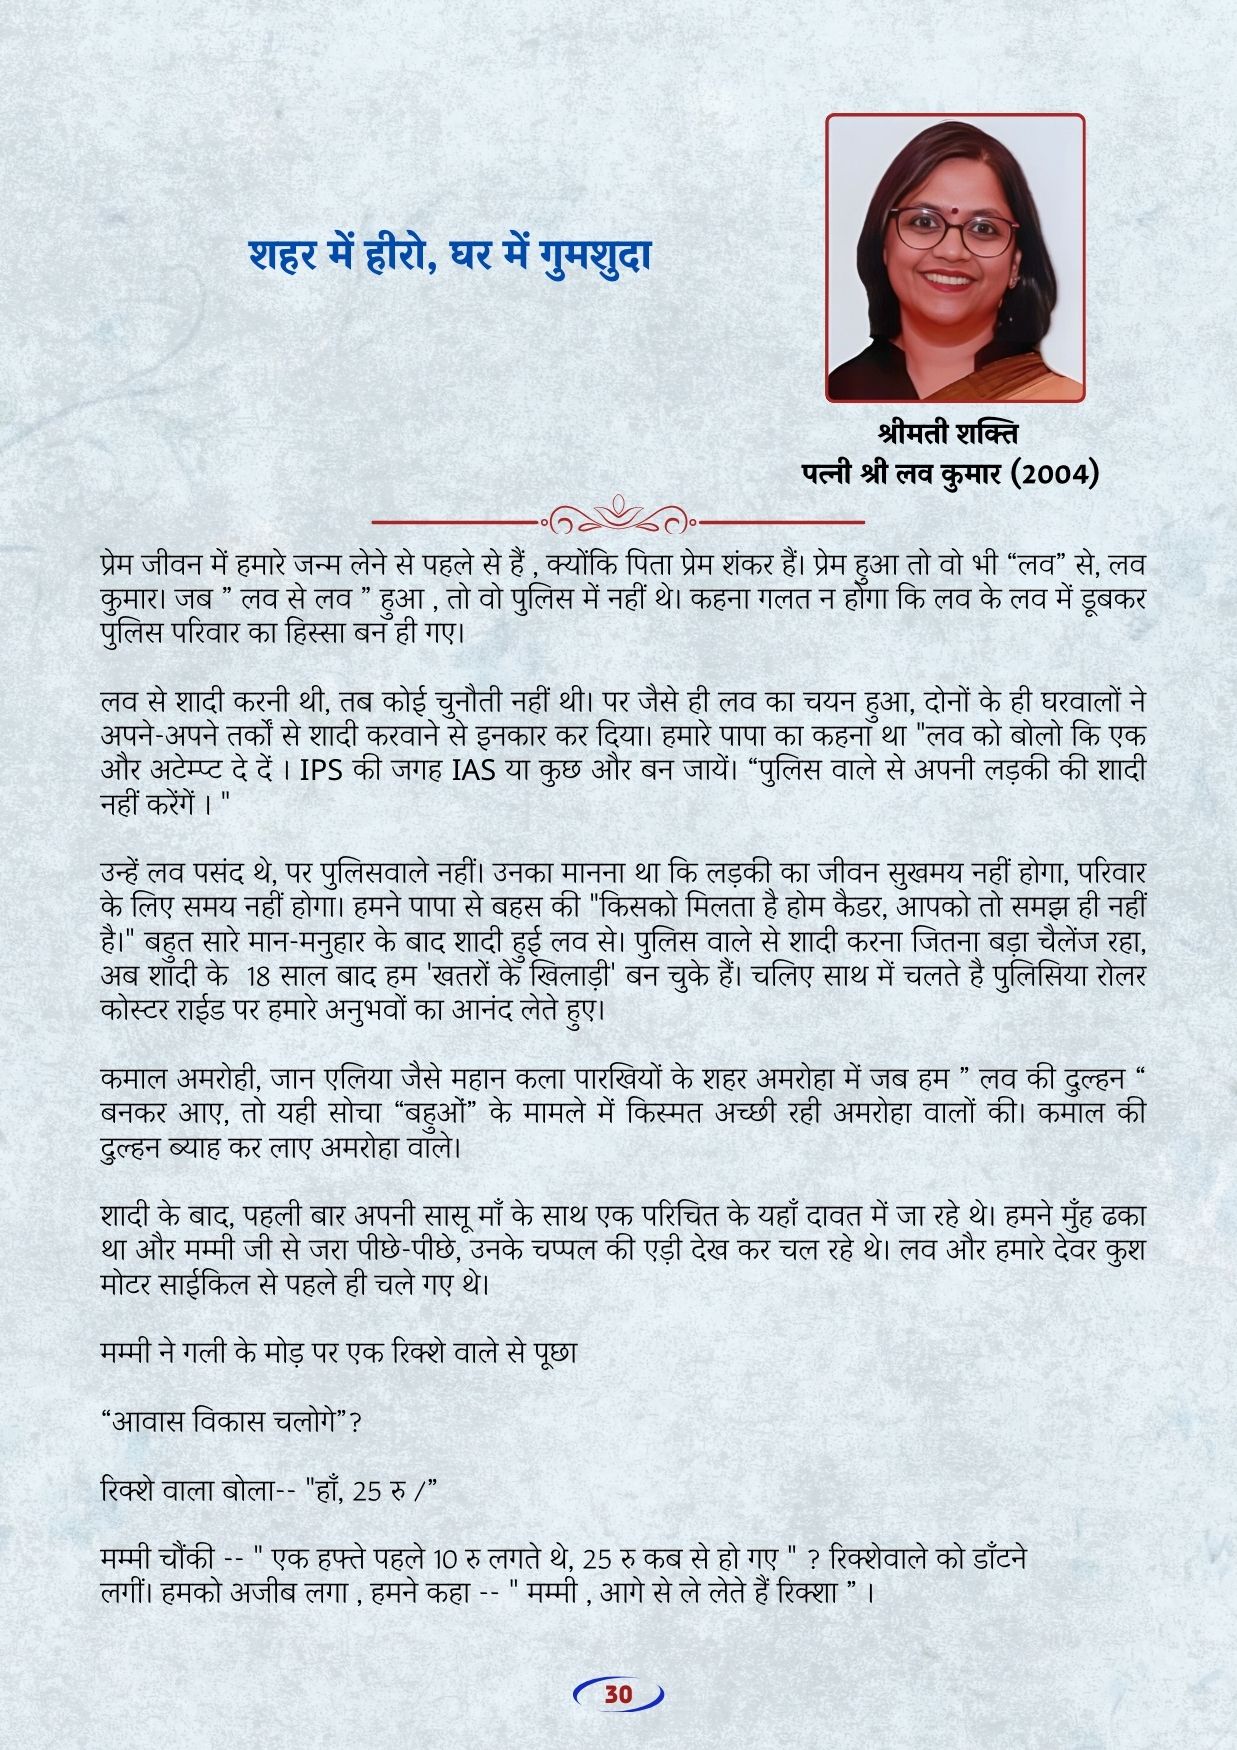 शहर में हीरो, घर में गुमशुदा
श्रीमती शक्ति
पत्नी श्री लव कुमार (2004)
प्रेम जीवन में हमारे जन्म लेने से पहले से हैं , क्योंकि पिता प्रेम शंकर हैं। प्रेम हुआ तो वो भी “लव” से, लव
कुमार। जब ” लव से लव ” हुआ , तो वो पुलिस में नहीं थे। कहना गलत न होगा कि लव के लव में डूबकर
पुलिस परिवार का हिस्सा बन ही गए।
लव से शादी करनी थी, तब कोई चुनौती नहीं थी। पर जैसे ही लव का चयन हुआ, दोनों के ही घरवालों ने
अपने-अपने तर्कों से शादी करवाने से इनकार कर दिया। हमारे पापा का कहना था "लव को बोलो कि एक
और अटेम्प्ट दे दें । IPS की जगह IAS या कुछ और बन जायें। “पुलिस वाले से अपनी लड़की की शादी
नहीं करेंगें । "
उन्हें लव पसंद थे, पर पुलिसवाले नहीं। उनका मानना था कि लड़की का जीवन सुखमय नहीं होगा, परिवार
के लिए समय नहीं होगा। हमने पापा से बहस की "किसको मिलता है होम कैडर, आपको तो समझ ही नहीं
है।" बहुत सारे मान-मनुहार के बाद शादी हुई लव से। पुलिस वाले से शादी करना जितना बड़ा चैलेंज रहा,
अब शादी के 18 साल बाद हम 'खतरों के खिलाड़ी' बन चुके हैं। चलिए साथ में चलते है पुलिसिया रोलर
कोस्टर राईड पर हमारे अनुभवों का आनंद लेते हुए।
कमाल अमरोही, जान एलिया जैसे महान कला पारखियों के शहर अमरोहा में जब हम ” लव की दुल्हन “
बनकर आए, तो यही सोचा “बहुओं” के मामले में किस्मत अच्छी रही अमरोहा वालों की। कमाल की
दुल्हन ब्याह कर लाए अमरोहा वाले।
शादी के बाद, पहली बार अपनी सासू माँ के साथ एक परिचित के यहाँ दावत में जा रहे थे। हमने मुँह ढका
था और मम्मी जी से जरा पीछे-पीछे, उनके चप्पल की एड़ी देख कर चल रहे थे। लव और हमारे देवर कुश
मोटर साईकिल से पहले ही चले गए थे।
मम्मी ने गली के मोड़ पर एक रिक्शे वाले से पूछा
“आवास विकास चलोगे”?
रिक्शे वाला बोला-- "हाँ, 25 रु /”
मम्मी चौंकी -- " एक हफ्ते पहले 10 रु लगते थे, 25 रु कब से हो गए " ? रिक्शेवाले को डाँटने
लगीं। हमको अजीब लगा , हमने कहा -- " मम्मी , आगे से ले लेते हैं रिक्शा ” ।
30